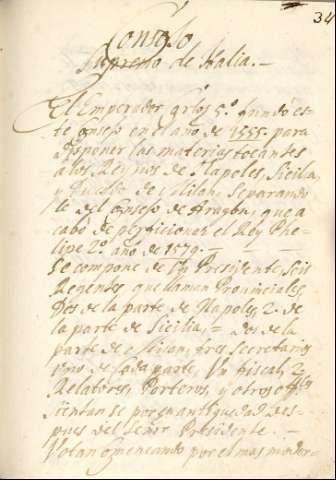 34
Consejo
Supremo de Italia.—
El Emperador Carlos 5.º fundó es-
te consejo en el año de 1555. para
disponer las materias tocantes
a los Reynos de Napoles, Sicilia,
y Ducado de Milan. Separando
le del consejo de Aragon, que a
cabo de perficionar el Rey Phe-
lipe 2.º año de 1579.—
Se compone de Presidente, Seis
Regentes que llaman Provinciales
Dos de la parte de Napoles, 2. de
la parte de Sicilia, = dos de la
parte de Milan, tres secretarios
uno de Cada parte, Un fiscal, 2
Relatores, Porteros, y otros
Sientan se por su antiguedad des-
pues del Señor Presidente.—
Votan comencando por el mas moder-